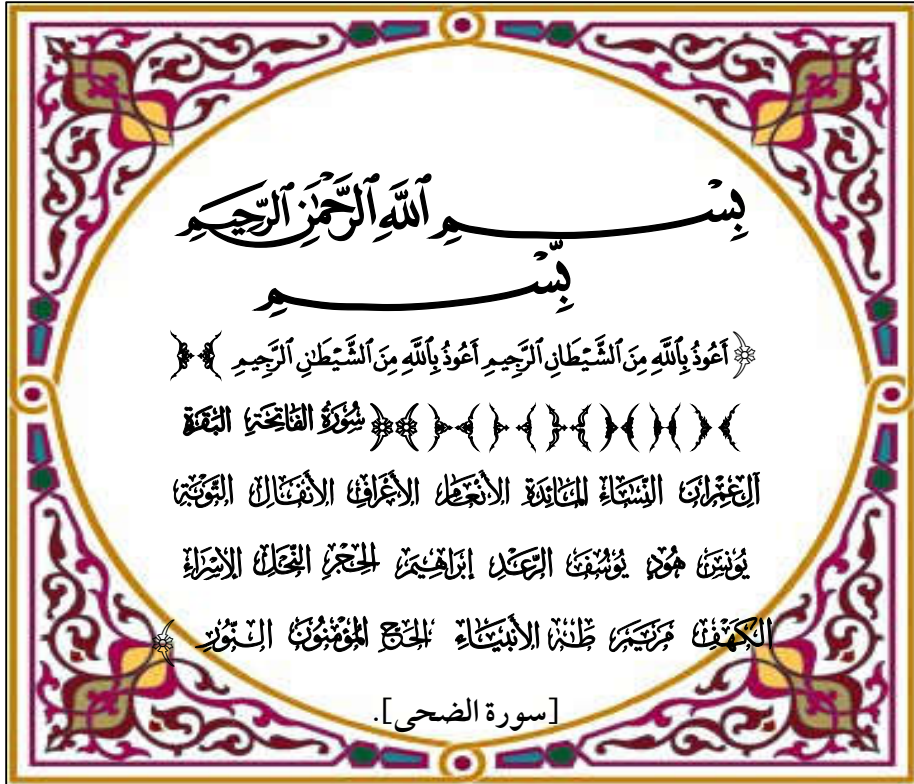 بِسْمِ ٱللَّهِ ٱلرَّحْمَٰنِ ٱلرَّحِيمِ
بِّسْمِ
﴿ أَعُوذُ بِٱللَّهِ مِنَ ٱلشَّيْطَانِ ٱلرَّجِيمِ أَعُوذُ بِٱللَّهِ مِنَ ٱلشَّيْطَٰنِ ٱلرَّجِيمِ
سُورَةُ الفَاتِحَةِ البَقَرَةِ
آلِ عِمْرَان النِّسَاءِ المَائدَة الأَنْعَامِ الأَعْرَافِ الأَنْفَالِ التَّوْبَة
يُونُسَ هُودٍ يُوسُفَ الرَّعْدِ إِبْرَاهِيمَ الحِجْرِ النَّحْلِ الإِسْرَاءِ
الكَهْفِ مَرْيَمَ طَهَ الأَنْبِيَاءِ الحَجِّ المُؤْمِنُونَ النُّورِ ﴾
[سورة الضحى].